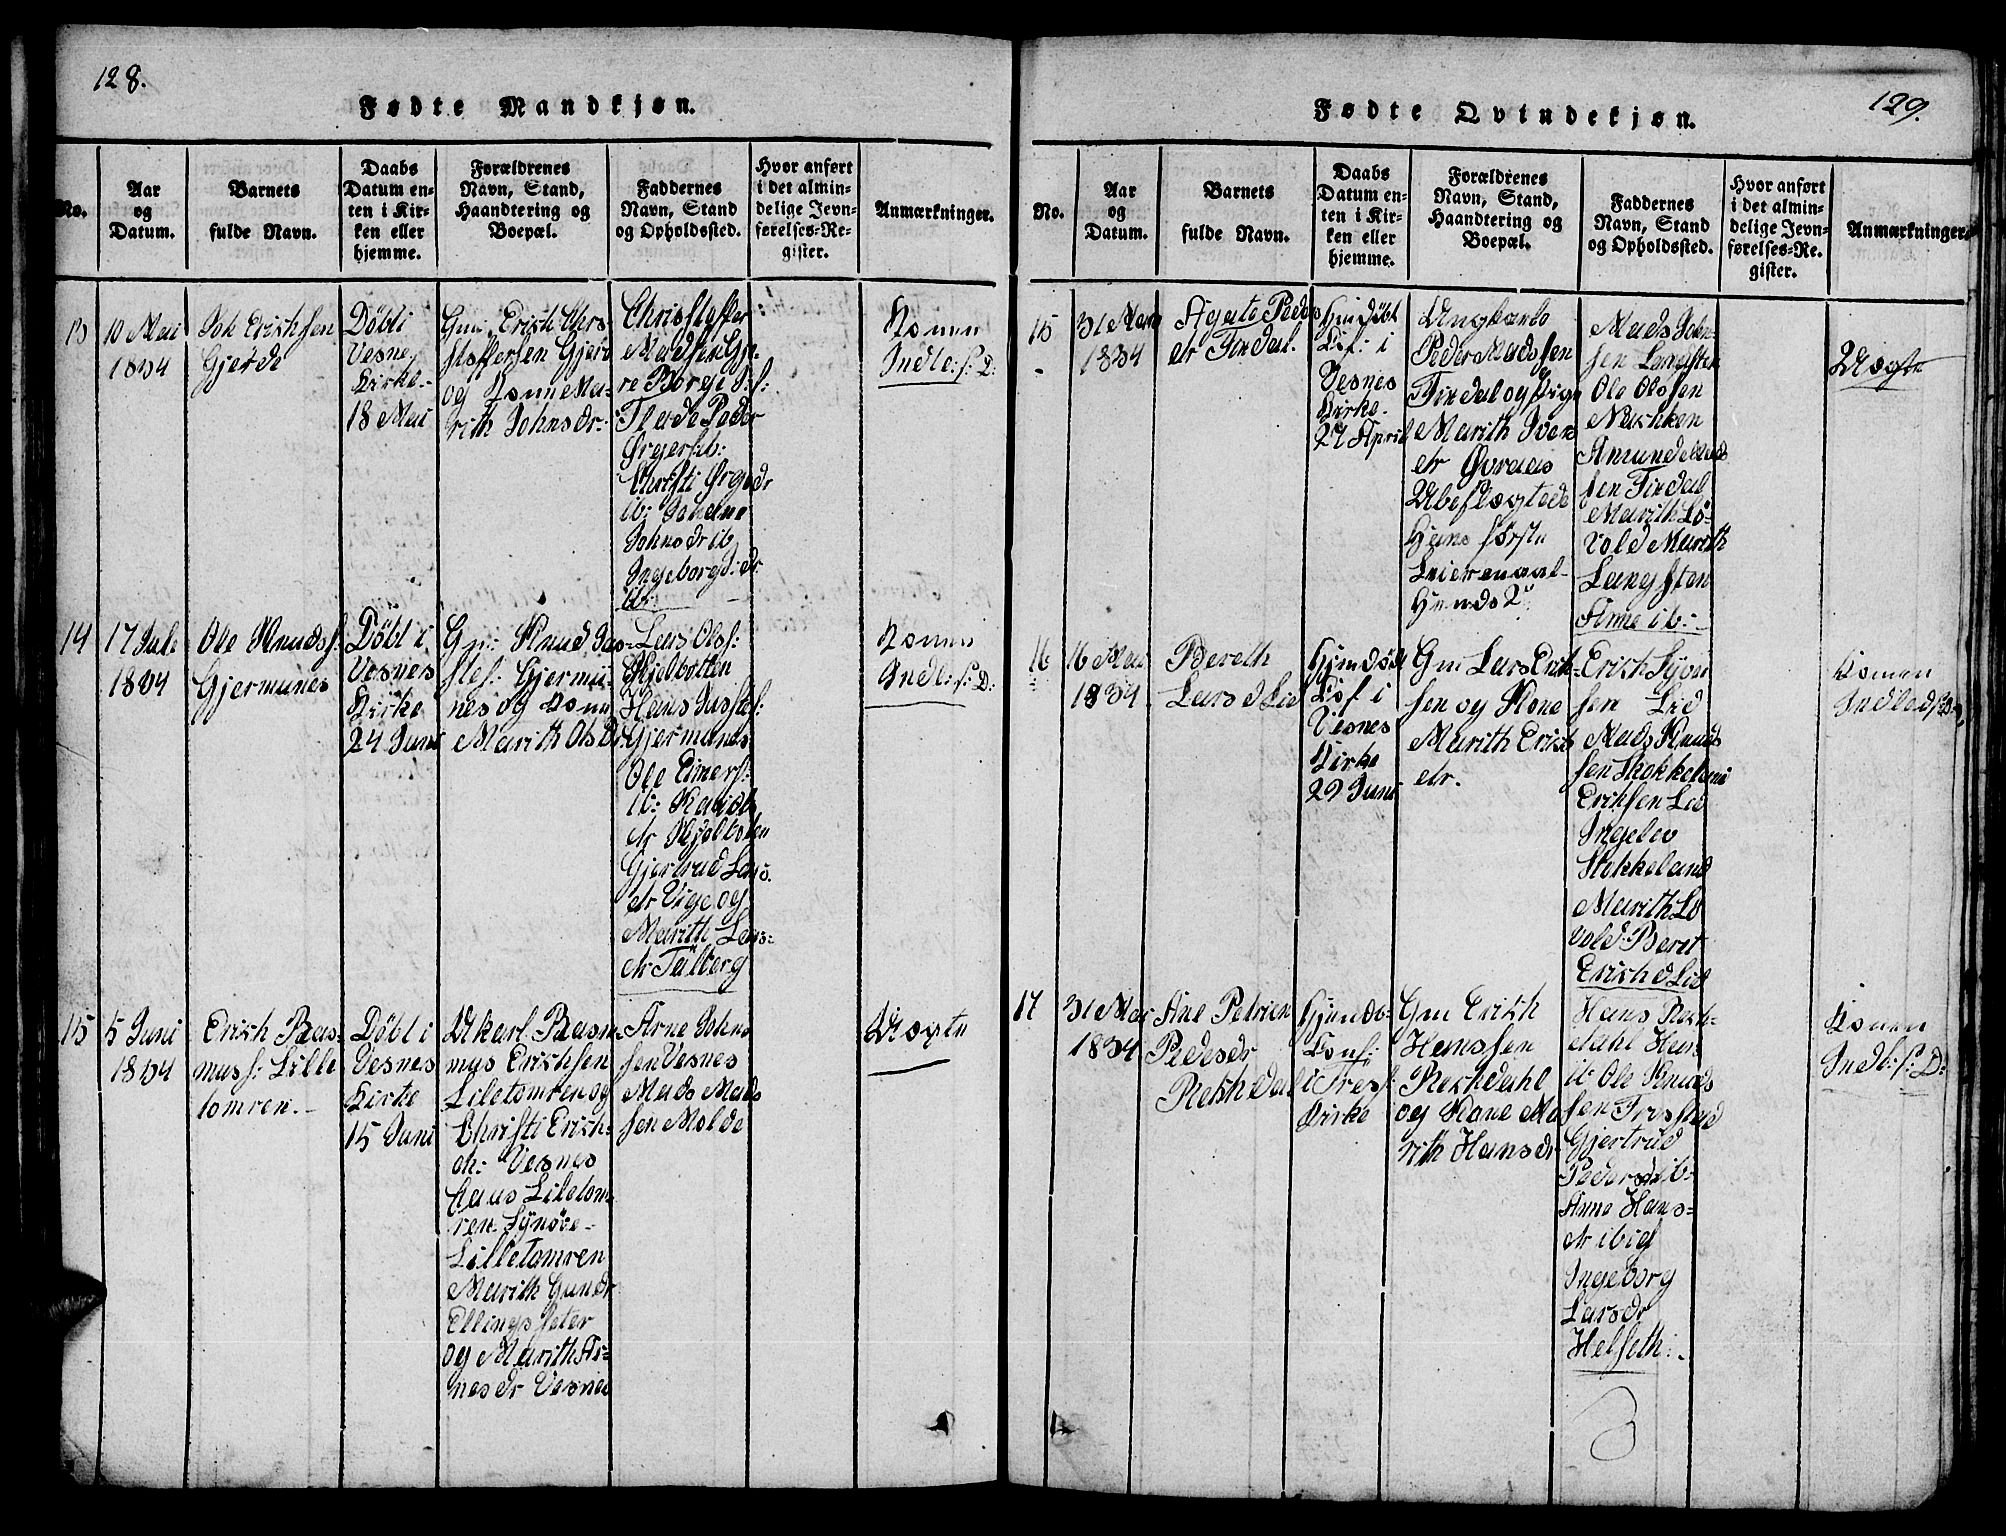 128.
Fødte Mandkjøn.
No.
Aar
og
Datum.
Barnets
fulde Navn.
Daabs
Datum en-
ten i Kir-
ken eller
hjemme.
Forældrenes
Navn, Stand,
Haandtering og
Boepæl.
Faddernes
Navn, Stand
og Opholdssted.
Hvor anført
i det almin-
delige Jevn-
førelses-Re-
gister.
Anmærkninger.
13
10 Mai
1834
Erichsen
Gjerde
Döbt i
Vesnes
Kirke
18 Mai
Gm: Erich Chri
stoffersen Gjerd
og Kone Ma-
rith Johnsdr:
Christoffer
Madsen Gje
re Børge
Peder
Ørgers: ib:
Christi Ørgedr
ib: Johanne
Johnsdr ib
Ingeborg dr:
ib:
Konen
Indl: f: D:
14
17 Juli
1834
Ole Knuds:
Gjermunes
Döbt i
Vesnes
Kirke
24 Juni
Gm: Knud Jos-
stef: Gjermu-
nes og Kone
Marith Olsdr
Lars Ols:
Kjelbotten
Hans Josstef:
Gjermunes
Ole Einers:
ib:
dr Kjelbotten
Gjertrud Lars-
dr Vige og
Marith Lars-
dr Talberg
Konen
Indl: f: D:
15
5 Juni
1834
Erich Ras-
mus: Lille
tomren.-
Döbt i
Vesnes
Kirke
15 Juni
Ukarl Rasm
mus Erichsen
Liletomren og
Christi Erich-
dr: Vesnes
Liletom
ren Synöve-
Lilletomren
Marith Gundr
Ellingsseter
og Marith Ar-
nesdr Vesnes
Arne Johns
sen Vesnes
Mads Mads
sen Molde
Uægte
129.
Fødte Qvindekjøn.
No.
Aar
og
Datum.
Barnets
fulde Navn.
Daabs
Datum en-
ten i Kir-
ken eller
hjemme.
Forældrenes
Navn, Stand,
Haandtering og
Boepæl.
Faddernes
Navn, Stand
og Opholdssted.
Hvor anført
i det almin-
delige Jevn-
førelses-Re-
gister.
Anmærkninger.
15
31 Mars
1834
Agate Peders
dr Findal.
Hjmdöbt
i
Vesnes
Kirke
27 April
Ungkarlo
Peder Madssen
Findal og Pige
Marith Iver
dr Øvraas
Ubeslægtede
Hans förste
Leiermaal
Hendes 2.
Mads John
sen Langsten
Ole Olssen
Nakken
Amund Mads
sen Findal
Marith Lö-
vold Marith
Langsten
Anne ib:-
Uægte
16
16 Mai
1834
Bereth
Larsd Lid
Hjmdöbt
i
Vesnes
Kirke
29 Juni
Gm Lars Erik-
sen og Kone
Marith Erichs
dr.
Erich Syver
sen Lid
Mads Knuds
sen Stokkeland
Erichsen Lid
Ingelev
Stokkeland
Marith Lö
vold: Beret
Erichd Lid
Konen
Indled f: D:
17
31 Mai
1834
Ane Petrien
Pedesdr
Rekkedal
Hjmdö-
Conf:
i Tres:
Kirke
Gm Erich
Hanssen
Rekkdahl
og Kone Ma
rith Hansdr
Hans Rek-
dahl Hans
ib: Ole Knuds
sen Tresfiord
Gjertrud
Pedersdr ib:
Anne Hans-
dr ibid
Ingeborg
Larsdr
Helseth:-
Konen
Indl: f: D: